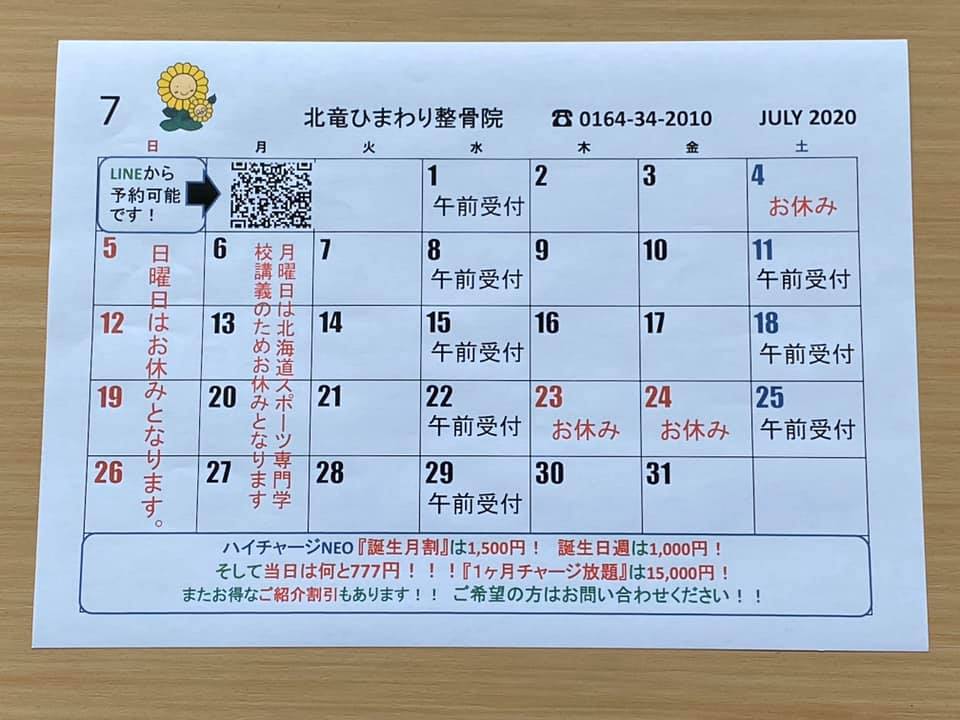 7
北竜ひまわり整骨院 ☎ 0164-34-2010 JULY 2020
日 月 火 水 木 金 土
LINEから
予約可能
です！
1 2 3 4
午前受付 お休み
5 6 7 8 9 10 11
午前受付 午前受付
12 13 14 15 16 17 18
午前受付 午前受付
19 20 21 22 23 24 25
午前受付 お休み お休み 午前受付
26 27 28 29 30 31
午前受付
日曜日はお休みとなります。
月曜日は北海道スポーツ専門学
校講義のためお休みとなります
ハイチャージNEO『誕生月割』は1,500円！ 誕生日週は1,000円！
そして当日は何と777円！！！『1ヶ月チャージ放題』は15,000円！
またお得なご紹介割引もあります！！ ご希望の方はお問い合わせください！！